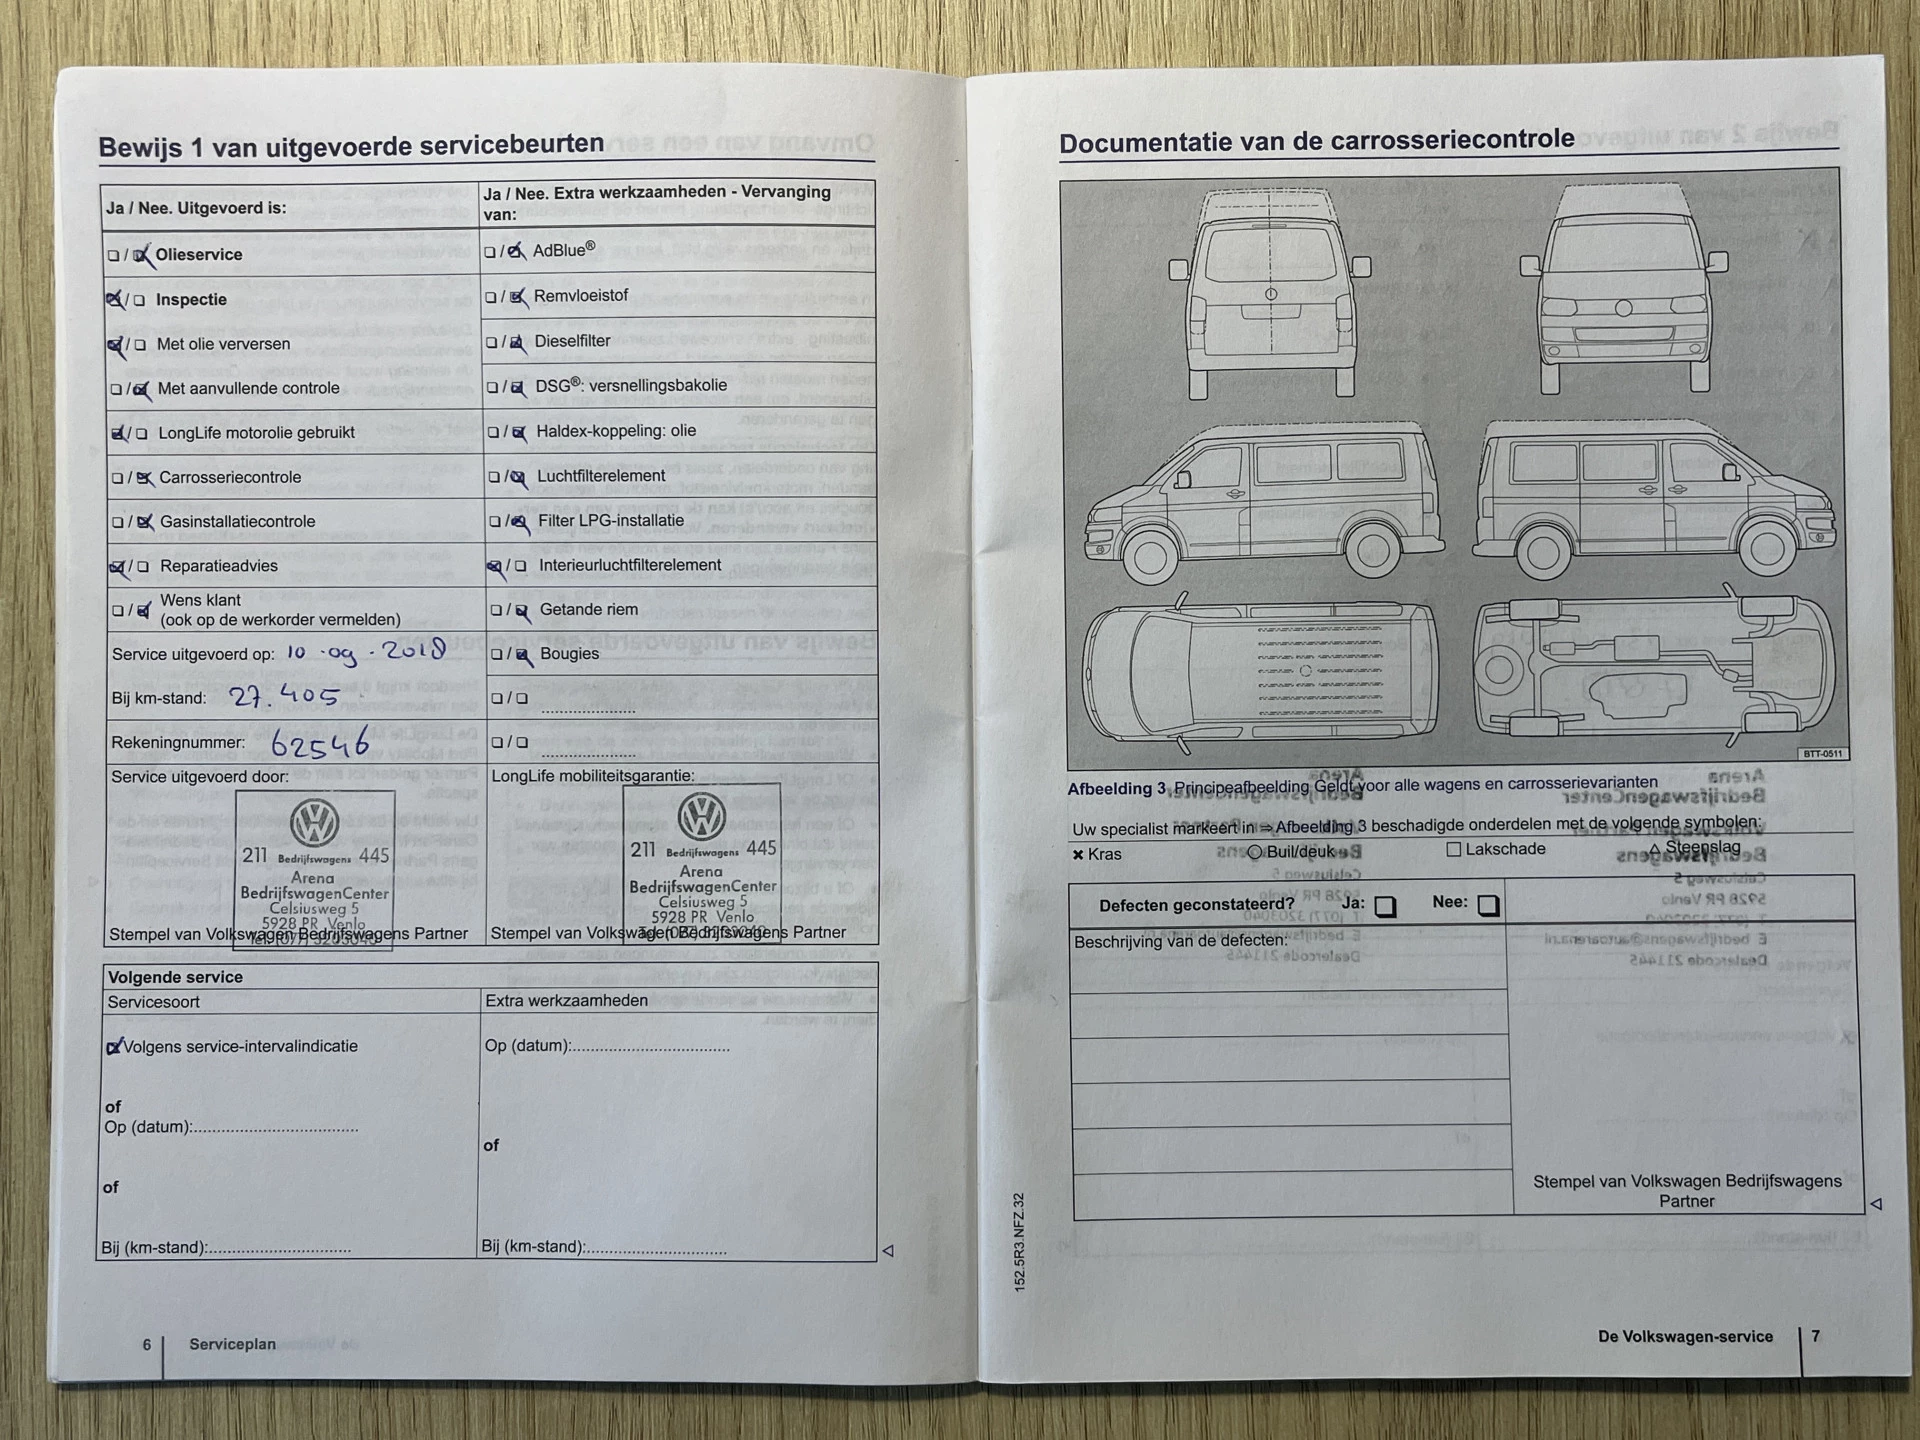 Bewijs 1 van uitgevoerde servicebeurten
Ja / Nee. Uitgevoerd is:
Ja / Nee. Extra werkzaamheden - Vervanging
van:
☐ / ☒ Olieservice
☐ / ☒ AdBlue®
☒ / ☐ Inspectie
☐ / ☒ Remvloeistof
☒ / ☐ Met olie verversen
☐ / ☒ Dieselfilter
☐ / ☒ Met aanvullende controle
☐ / ☒ DSG®: versnellingsbakolie
☒ / ☐ LongLife motorolie gebruikt
☐ / ☒ Haldex-koppeling: olie
☐ / ☒ Carrosseriecontrole
☐ / ☒ Luchtfilterelement
☐ / ☒ Gasinstallatiecontrole
☐ / ☒ Filter LPG-installatie
☒ / ☐ Reparatieadvies
☒ / ☐ Interieurluchtfilterelement
☐ / ☒ Wens klant
(ook op de werkorder vermelden)
☐ / ☒ Getande riem
Service uitgevoerd op: 10 - 09 - 2018
☐ / ☒ Bougies
Bij km-stand: 27.405
☐ / ☐ ....................
Rekeningnummer: 62546
☐ / ☐ ....................
Service uitgevoerd door:
211 Bedrijfswagens 445
Arena
BedrijfswagenCenter
Celsiusweg 5
5928 PR Venlo
Tel. (077) 3203040
Stempel van Volkswagen Bedrijfswagens Partner
LongLife mobiliteitsgarantie:
211 Bedrijfswagens 445
Arena
BedrijfswagenCenter
Celsiusweg 5
5928 PR Venlo
Tel. (077) 3203040
Stempel van Volkswagen Bedrijfswagens Partner
Volgende service
Servicesoort
Extra werkzaamheden
☒ Volgens service-intervalindicatie
of
Op (datum):..............................
of
Bij (km-stand):..........................
Op (datum):..............................
of
Bij (km-stand):..........................
6 Serviceplan
Documentatie van de carrosseriecontrole
BTT-0511
Afbeelding 3 Principeafbeelding Geldt voor alle wagens en carrosserievarianten
Uw specialist markeert in ⇒ Afbeelding 3 beschadigde onderdelen met de volgende symbolen:
× Kras
○ Buil/deuk
☐ Lakschade
△ Steenslag
Defecten geconstateerd? Ja: ☐ Nee: ☐
Beschrijving van de defecten:
Stempel van Volkswagen Bedrijfswagens
Partner
152.5R3.NFZ.32
De Volkswagen-service 7